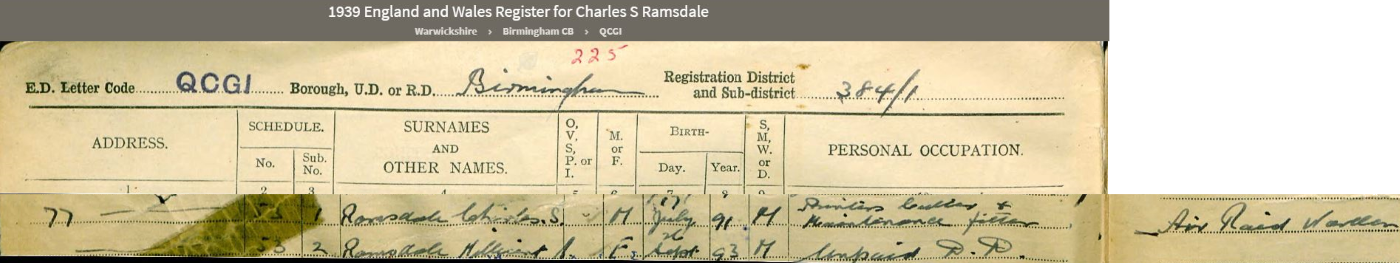 1939 England and Wales Register for Charles S Ramsdale
Warwickshire › Birmingham CB › QCGI
225
E.D. Letter Code QCGI Borough, U.D. or R.D. Birmingham Registration District and Sub-district 384/1
ADDRESS. SCHEDULE. No. Sub. No. SURNAMES AND OTHER NAMES. O, V, S, P. or I. M. or F. BIRTH- Day. Year. S, M, W. or D. PERSONAL OCCUPATION.
1 2 3 4 5 6 7 8 9
77 53 1 Ramsdale Charles S. M 17 July 91 M cutter & Maintenance fitter Air Raid Warden
53 2 Ramsdale Millicent A. F 26 Sept 93 M Unpaid D.D.